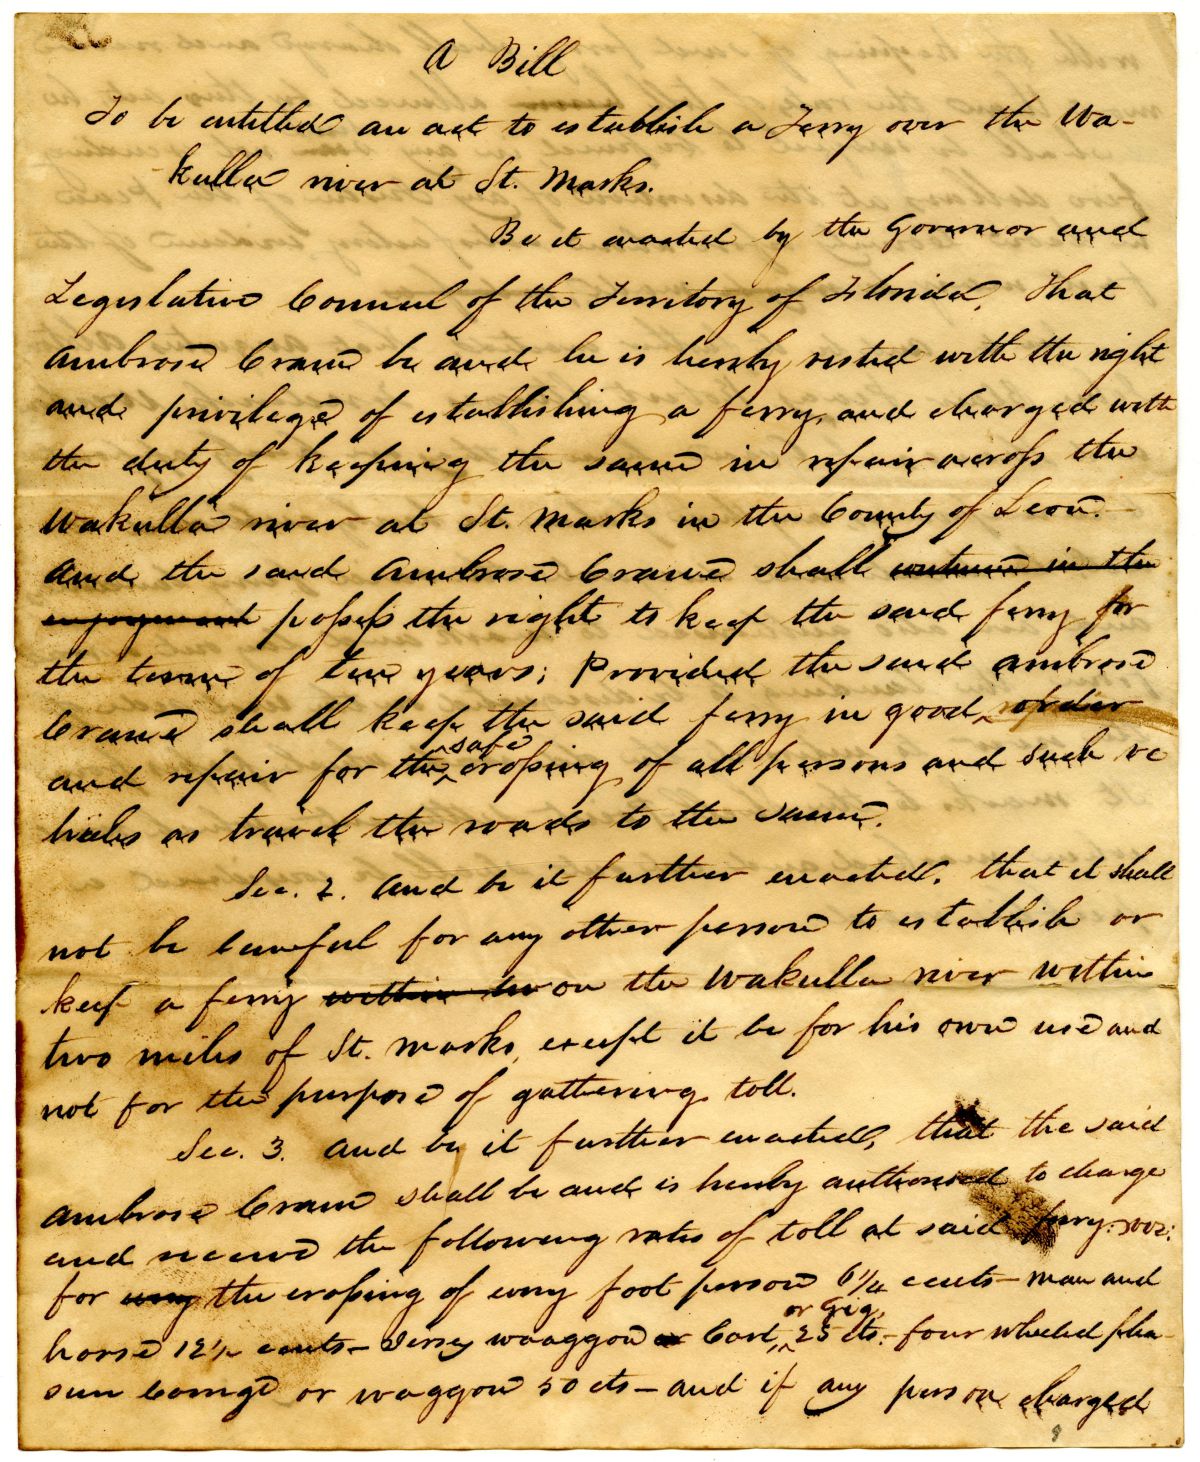 A Bill
To be entitled an act to establish a Ferry over the Wa-
kulla river at St. Marks.
Be it enacted by the Governor and
Legislative Council of the Territory of Florida, That
Ambrose Crane be and he is hereby vested with the right
and privilege of establishing a ferry, and charged with
the duty of keeping the same in repair across the
Wakulla river at St. Marks in the County of Leon.
And the said Ambrose Crane shall continue in the
enjoyment possess the right to keep the said ferry for
the term of ten years; Provided the said Ambrose
Crane shall keep the said ferry in good order
and repair for the safe crossing of all persons and such ve
hicles as travel the roads to the same.
Sec. 2. And be it further enacted, that it shall
not be lawful for any other person to establish or
keep a ferry within two on the Wakulla river within
two miles of St. Marks, except it be for his own use and
not for the purpose of gathering toll.
Sec. 3. And be it further enacted, that the said
Ambrose Crane shall be and is hereby authorised to charge
and receive the following rates of toll at said ferry: viz:
for every the crossing of every foot person 6 1/4 cents - man and
horse 12 1/2 cents - Jersey waggon or Cart, or Gig, 25 cts. - four wheeled plea-
sure Carriage or waggon 50 cts - and if any person charged